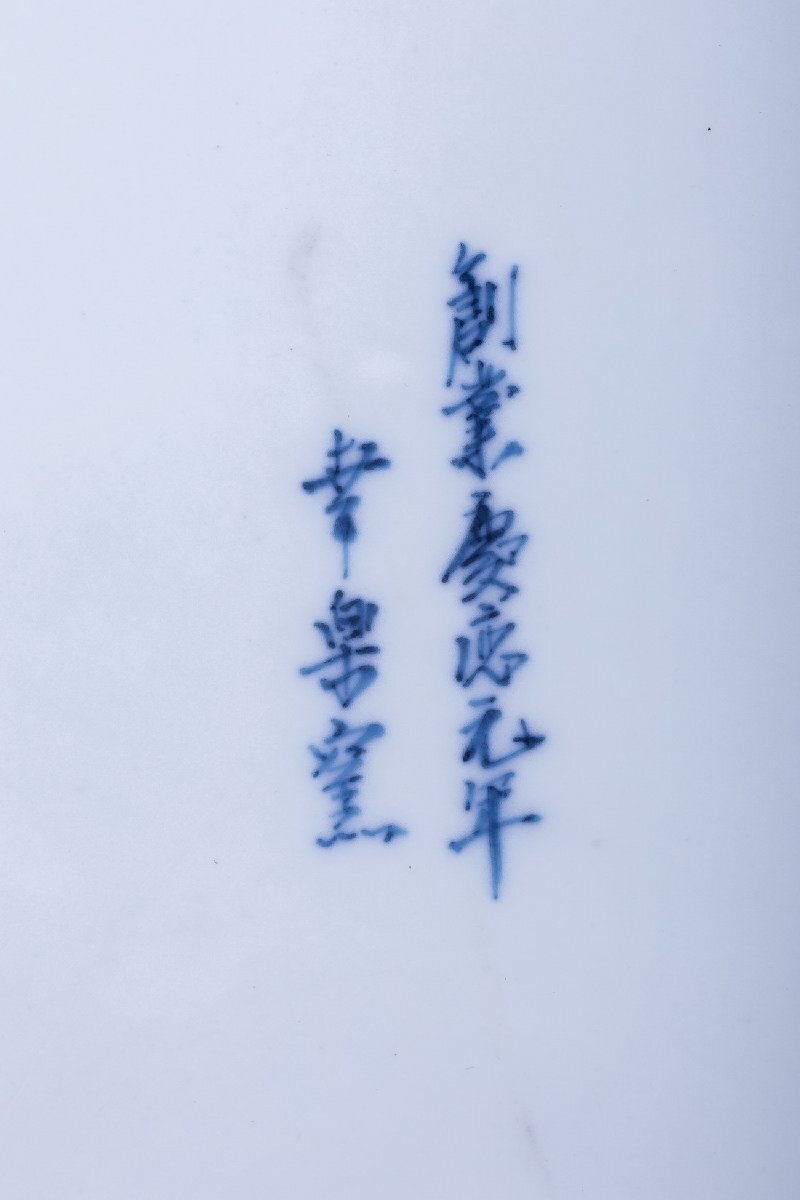 創業慶応元年
幸楽窯